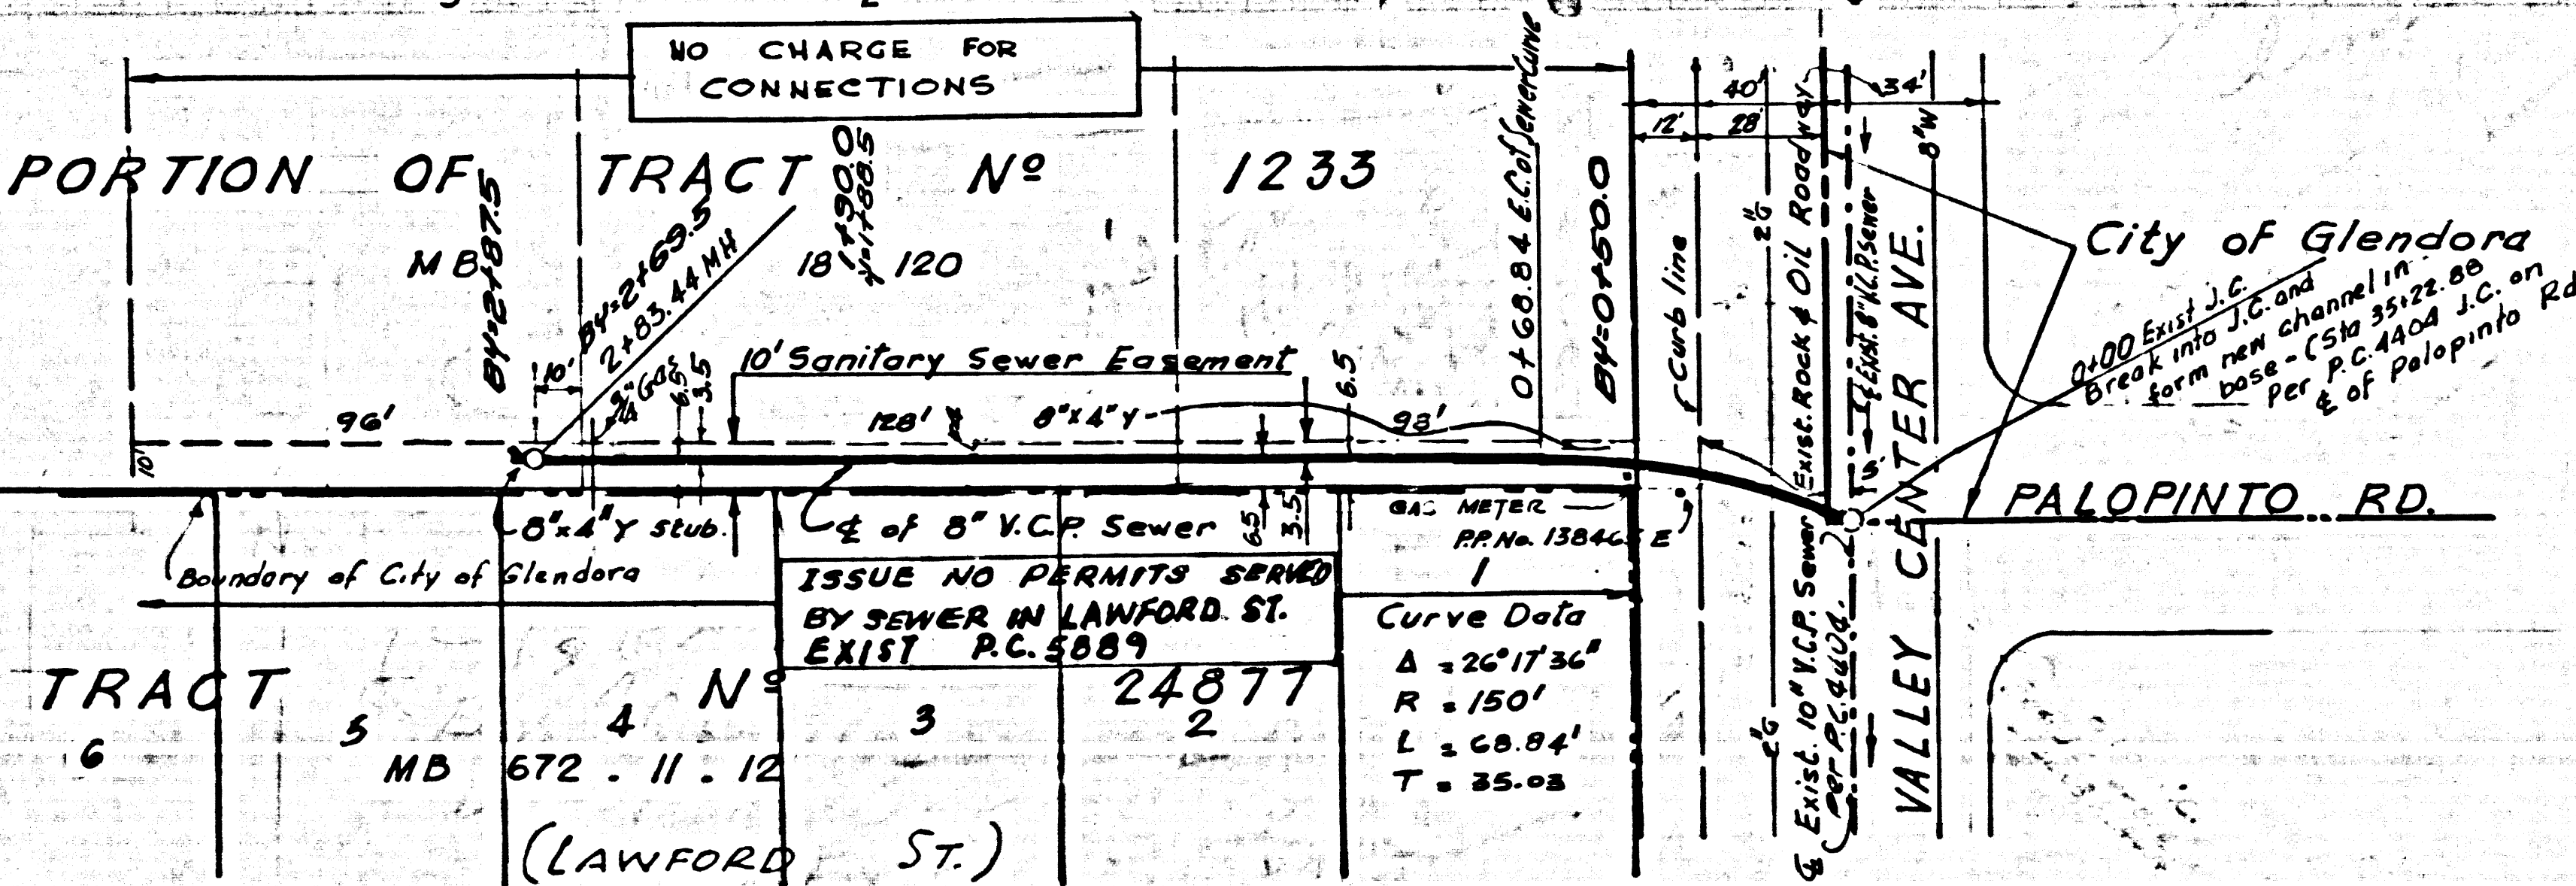 NO CHARGE FOR
CONNECTIONS
PORTION OF TRACT Nº 1233
MB 18 120
BY=2+87.5
BY=2+69.5
2+83.44 MH
1+90.0
Y=1+88.5
0+68.84 E.C. of Sewer Curve
BY=0+50.0
Curb line
40'
34'
12'
28'
2"G
Exist. Rock & Oil Roadway
Exist. 8" V.C.P. Sewer
8"W
VALLEY CENTER AVE.
City of Glendora
0+00 Exist J.C.
Break into J.C. and
form new channel in
base - (Sta 35+22.88
per P.C. 4404 J.C. on
℄ of Palopinto Rd
10'
2" Gas
6.5
3.5
10' Sanitary Sewer Easement
6.5
96'
128'
8"x4" Y
93'
10'
5'
PALOPINTO RD.
8"x4" Y Stub.
℄ of 8" V.C.P. Sewer
6.5
3.5
GAS METER
P.P. No. 138465 E
Boundary of City of Glendora
ISSUE NO PERMITS SERVED
BY SEWER IN LAWFORD ST.
EXIST P.C. 5889
1
Curve Data
Δ = 26°17'36"
R = 150'
L = 68.84'
T = 35.03
TRACT Nº 24877
6 5 4 3 2
MB 672 . 11 . 12
(LAWFORD ST.)
2"G
℄ Exist. 10" V.C.P. Sewer
Per P.C. 4404.